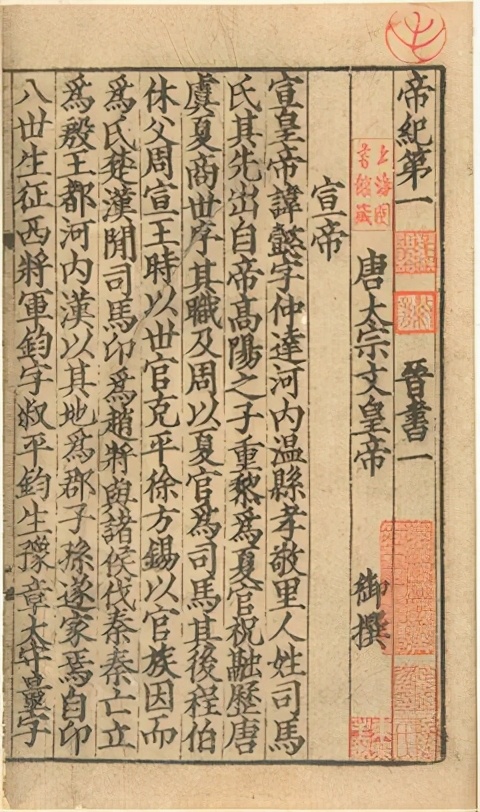 帝紀第一 晉書一
唐太宗文皇帝 御撰
宣帝
宣皇帝諱懿字仲達河内温縣孝敬里人姓司馬
氏其先出自帝高陽之子重黎為夏官祝融歷唐
虞夏商世序其職及周以夏官為司馬其後程伯
休父周宣王時以世官克平徐方錫以官族因而
為氏楚漢閒司馬卬為趙將與諸侯伐秦秦亡立
為殷王都河内漢以其地為郡子孫遂家焉自卬
八世生征西將軍鈞字叔平鈞生豫章太守量字
上海圖書館藏